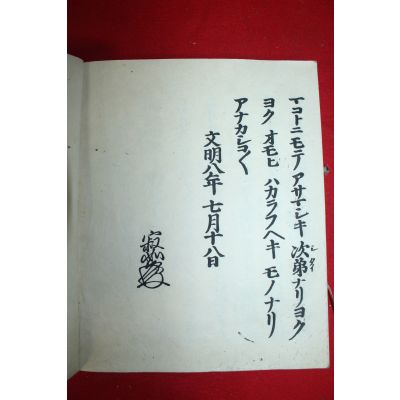 マコトニモテアサマシキ次第ナリヨク
ヨクオモヒハカラフヘキモノナリ
アナカシコ〱
文明八年七月十八日